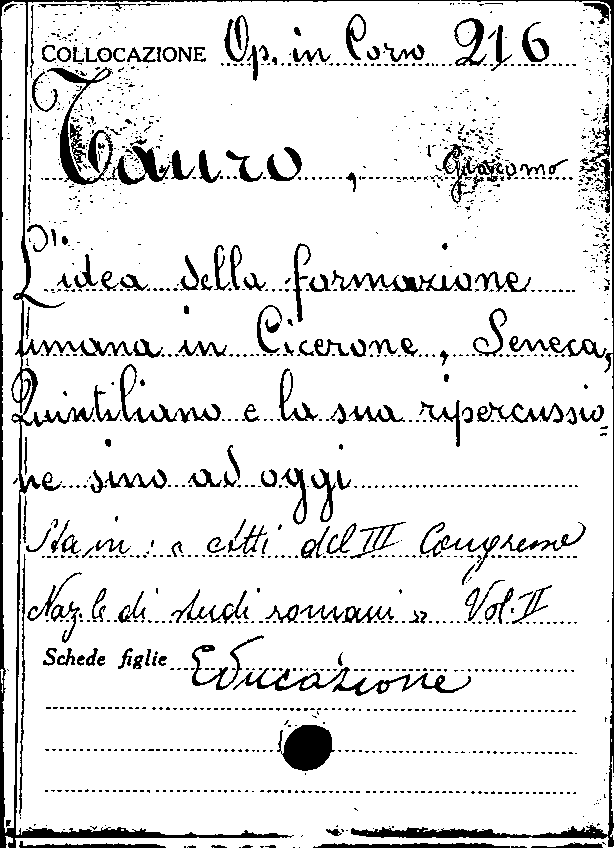 COLLOCAZIONE Op. in Corso 216
Tauro, Giacomo
L'idea della formazione
umana in Cicerone, Seneca,
Quintiliano e la sua ripercussio=
ne sino ad oggi
Sta in: « Atti del III Congresso
Naz.le di studi romani » Vol. II
Schede figlie Educazione